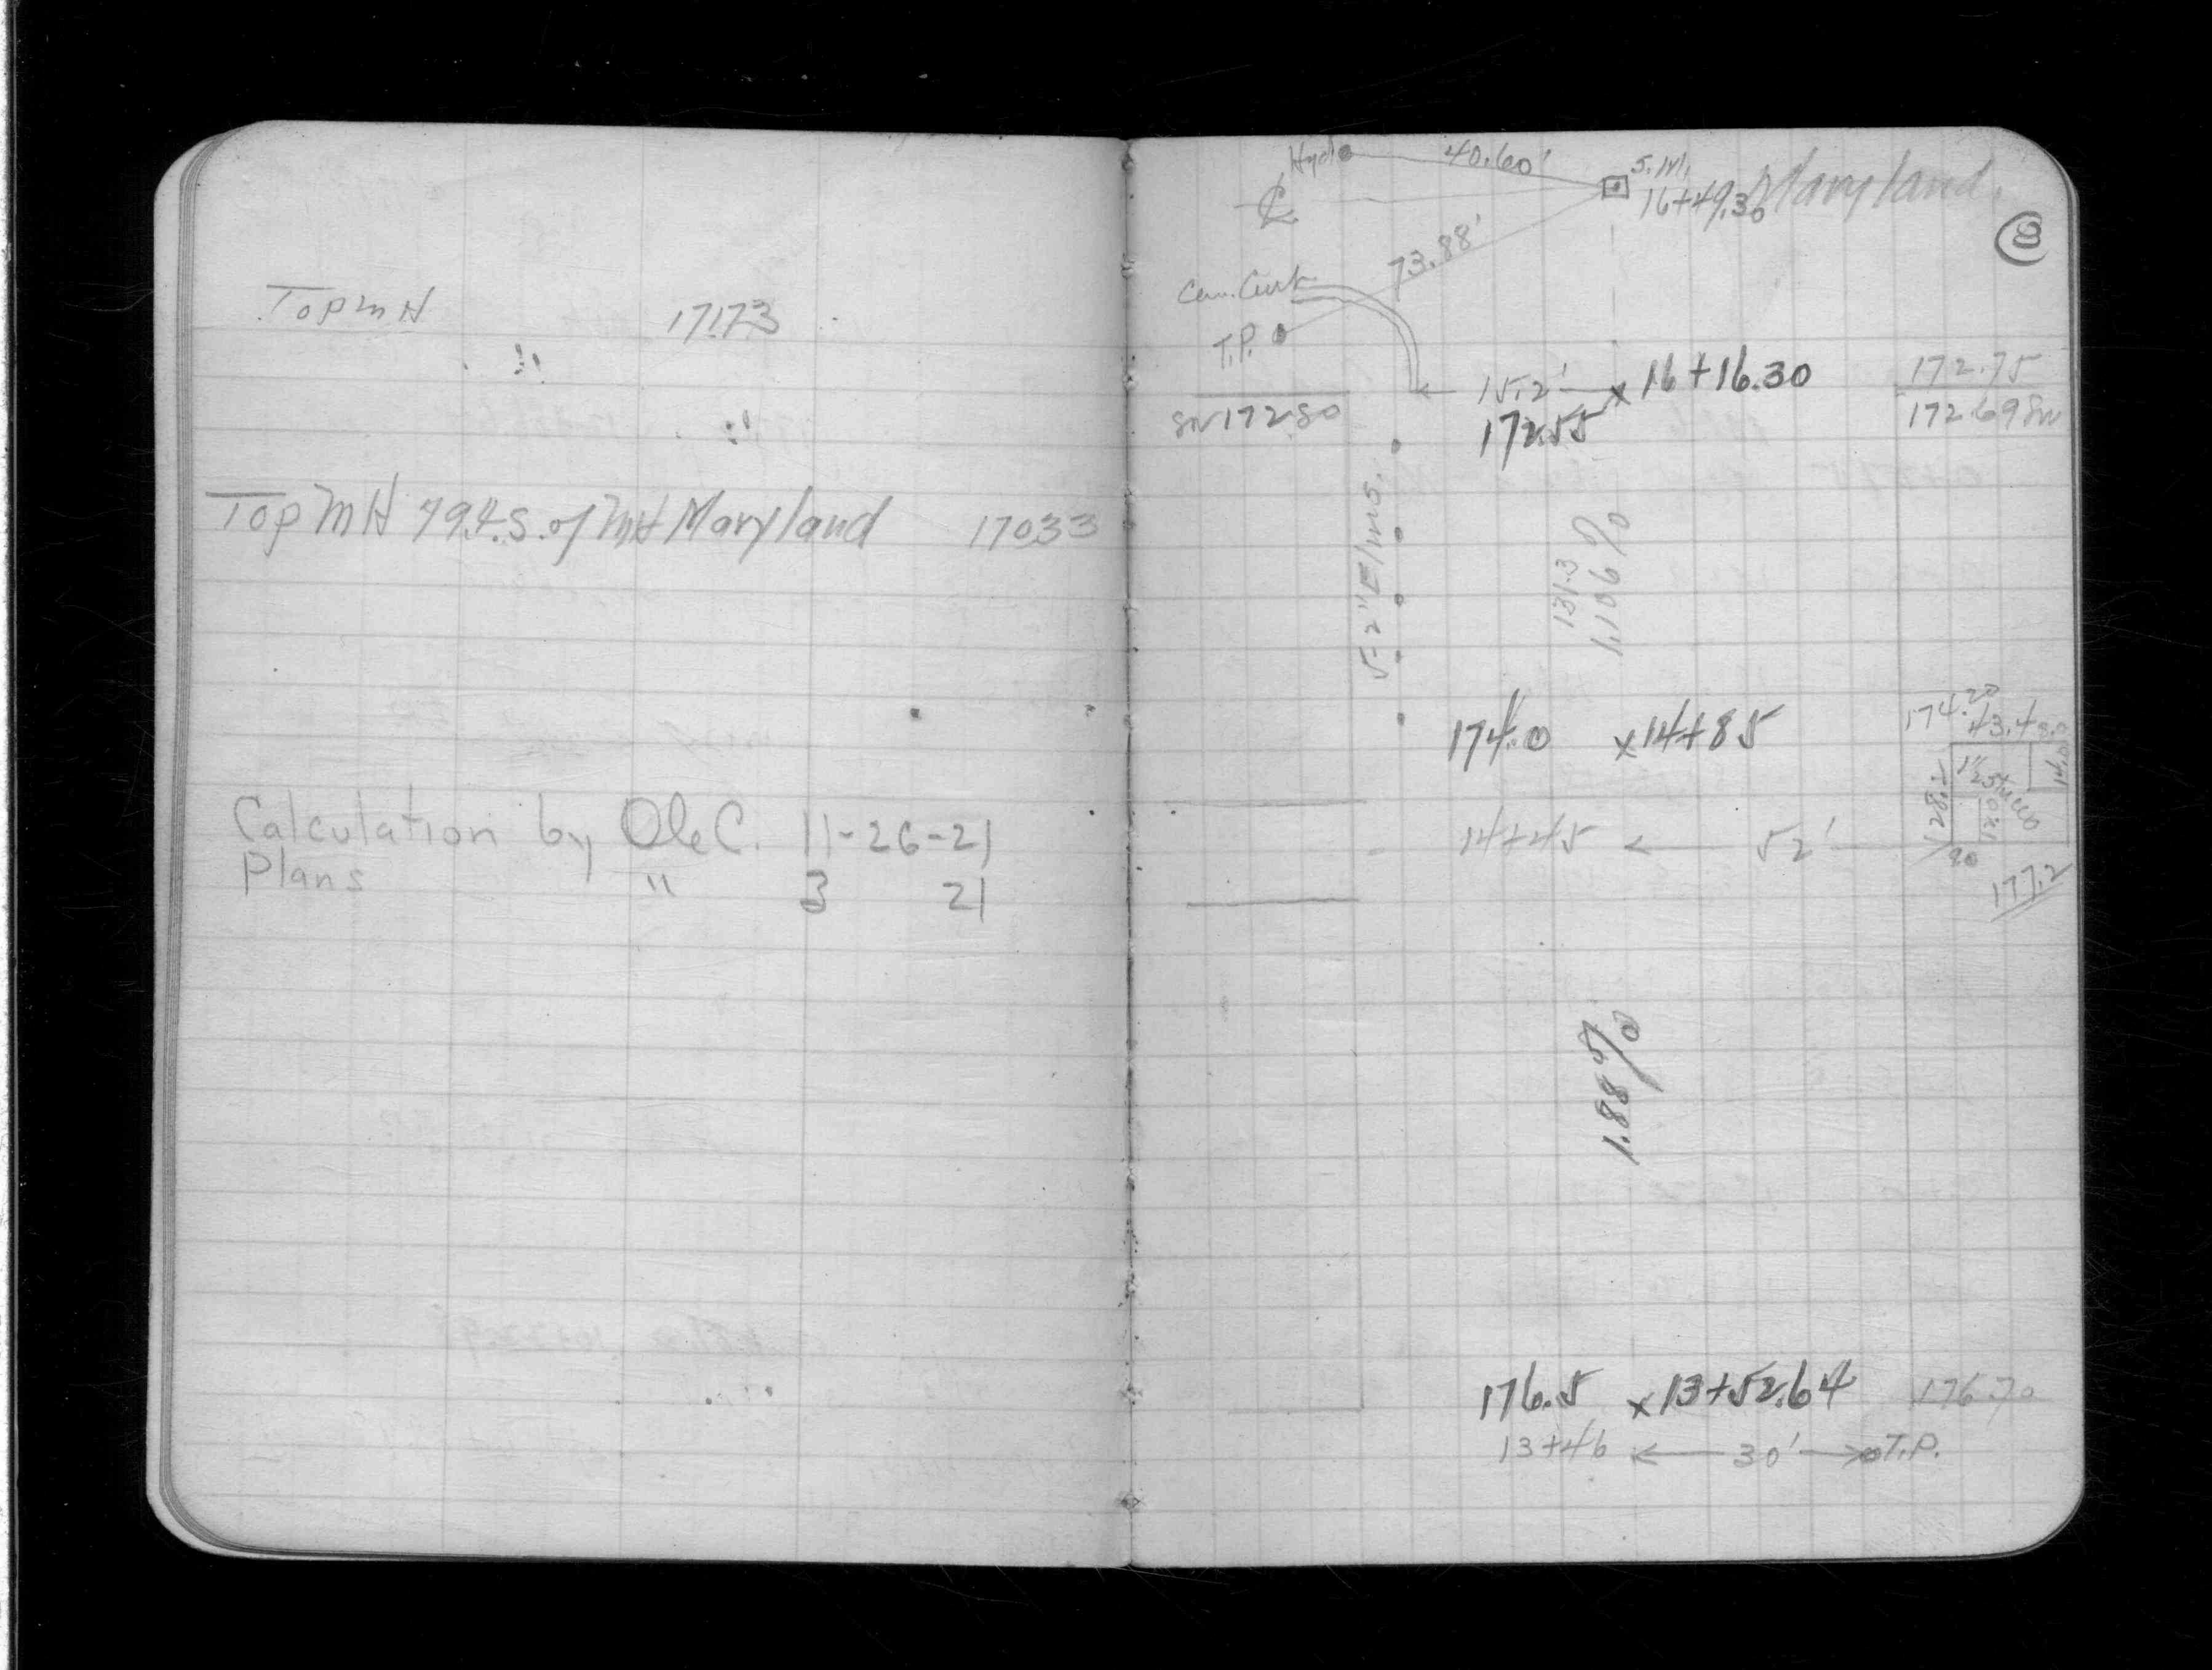 Top MH 171.73
Top MH 79.4.S. of MH Maryland 170.33
Calculation by Ole C. 11-26-21
Plans " 3 21
Hyd 40.60' S.M.
℄ 16+49.30 Maryland.
8
73.88'
Cem. Curb
T.P.
15.2' x 16+16.30 172.75
SW 172.80 172.55 172.69 SW
5-2" Elms.
131.3
1.106%
174.0 x 14+85 174.20
43.4 8.0
14.0
28.2 1½ Stucco
12.0
14+45 ← 52'
20
177.2
1.88%
176.5 x 13+52.64 176.70
13+46 ← 30' → T.P.